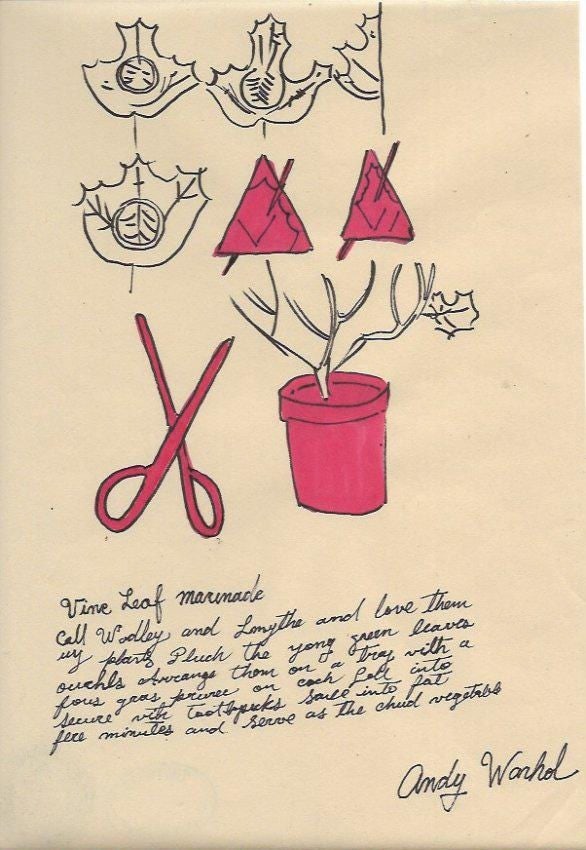 Vine Leaf marinade
Call Wodley and Lonythe and love them
uy plants Pluch the yong green leaves
ouchls Arrange them on a tray with a
fous gras puree on each Fold into
secure with Toothpicks Saute into fat
fere minutes and serve as the chud vegetable
Andy Warhol